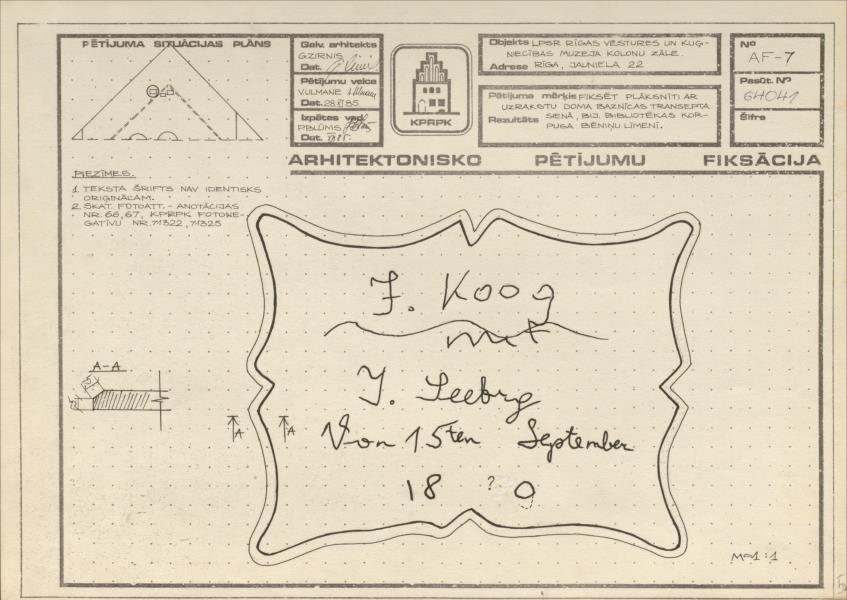 PĒTĪJUMA SITUĀCIJAS PLĀNS
Galv. arhitekts
G.ZIRNIS
Dat.
Pētījumu veica
VULMANE
Dat. 28.XI 85.
Izpētes vad.
P.BLŪMS
Dat.
KPRPK
Objekts LPSR RĪGAS VĒSTURES UN KUĢ-
NIECĪBAS MUZEJA KOLONU ZĀLE.
Adrese RĪGA, JAUNIELA 22
Pētījuma mērķis FIKSĒT PLĀKSNĪTI AR
UZRAKSTU DOMA BAZNĪCAS TRANSEPTA
Rezultāts SIENĀ, BIJ. BIBLIOTĒKAS KOR-
PUSA BĒNIŅU LĪMENĪ.
No
AF-7
Pasūt. No
GH041
Šifrs
ARHITEKTONISKO PĒTĪJUMU FIKSĀCIJA
PIEZĪMES.
1. TEKSTA ŠRIFTS NAV IDENTISKS
ORIĢINĀLAM.
2. SKAT. FOTOATT. - ANOTĀCIJAS
NR. 66, 67, KPRPK FOTONE-
GATĪVU NR. 71322, 71325
J. Koog
mit
J. Seebrg
Von 15ten September
18 ? 9
A-A
A
A
M=1:1